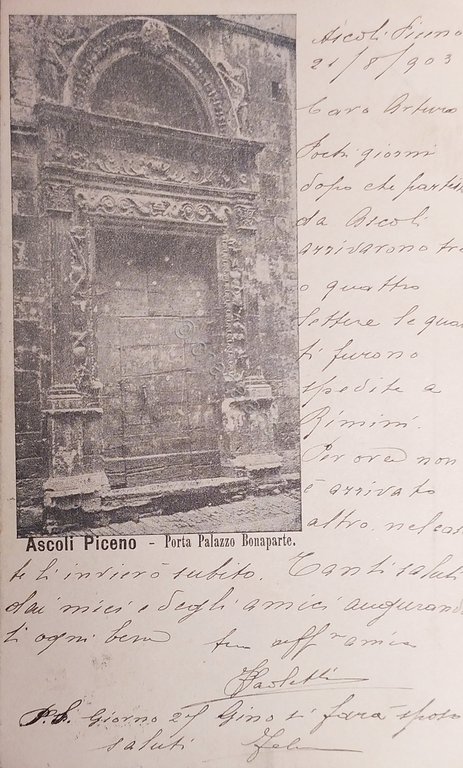 Ascoli Piceno
21/8/903
Caro Arturo
Pochi giorni
dopo che partis
da Ascoli
arrivarono tre
o quattro
lettere le qua
ti furono
spedite a
Rimini.
Per ora non
è arrivato
altro, nel cas
Ascoli Piceno - Porta Palazzo Bonaparte.
te li invierò subito. Tanti saluti
dai miei e degli amici augurand
ti ogni bene tuo aff mo amico
Paoletti
P.S. Giorno Gino si farà sposo
saluti